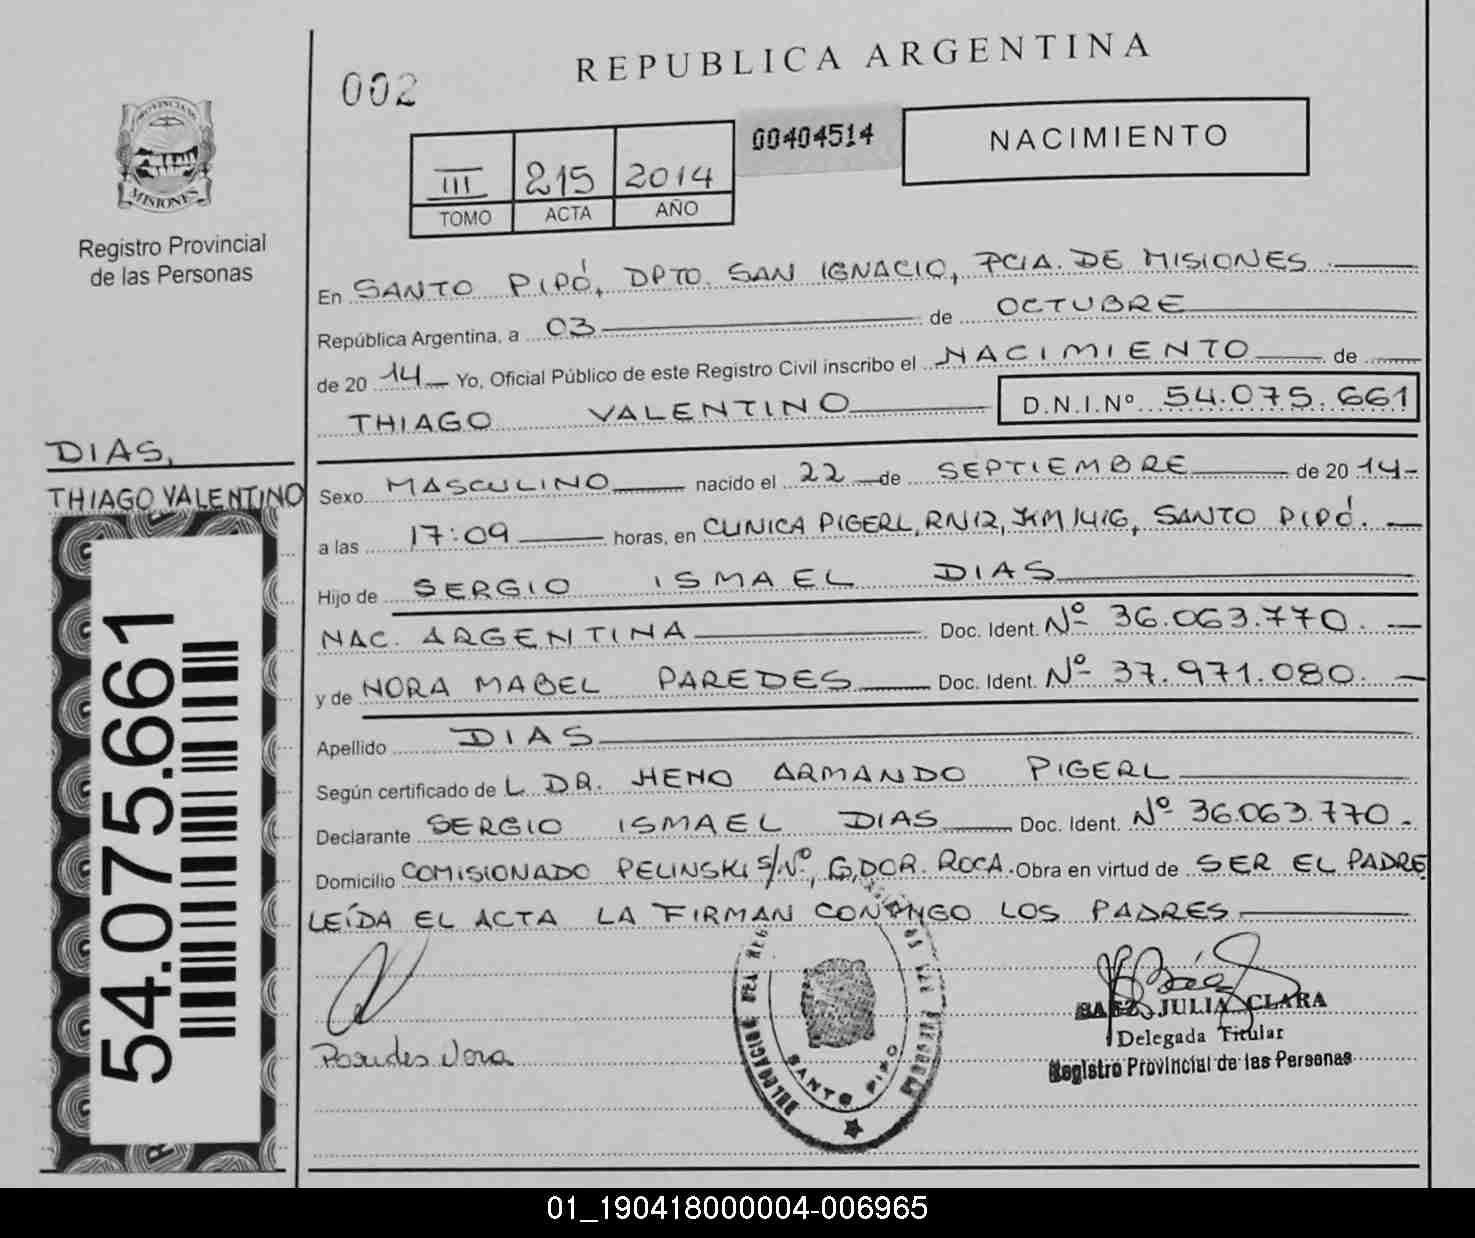 REPUBLICA ARGENTINA
002
00404514
NACIMIENTO
III 215 2014
TOMO ACTA AÑO
PROVINCIA DE
MISIONES
Registro Provincial
de las Personas
En SANTO PIPÓ, DPTO. SAN IGNACIO, PCIA. DE MISIONES
República Argentina, a 03 de OCTUBRE
de 20 14 Yo, Oficial Público de este Registro Civil inscribo el NACIMIENTO de
THIAGO VALENTINO D.N.I.Nº 54.075.661
DIAS,
THIAGO VALENTINO
54.075.661
Sexo MASCULINO nacido el 22 de SEPTIEMBRE de 20 14-
a las 17:09 horas, en CLINICA PIGERL, RN12, KM 1416, SANTO PIPÓ.
Hijo de SERGIO ISMAEL DIAS
NAC. ARGENTINA Doc. Ident. Nº 36.063.770.
y de NORA MABEL PAREDES Doc. Ident. Nº 37.971.080.
Apellido DIAS
Según certificado de L DR. HENO ARMANDO PIGERL
Declarante SERGIO ISMAEL DIAS Doc. Ident. Nº 36.063.770.
Domicilio COMISIONADO PELINSKI S/Nº, G,DOR. ROCA. Obra en virtud de SER EL PADRE
LEÍDA EL ACTA LA FIRMAN CONMIGO LOS PADRES
Paredes Nora
SANTO PIPO
SAEZ JULIA CLARA
Delegada Titular
Registro Provincial de las Personas
01_190418000004-006965